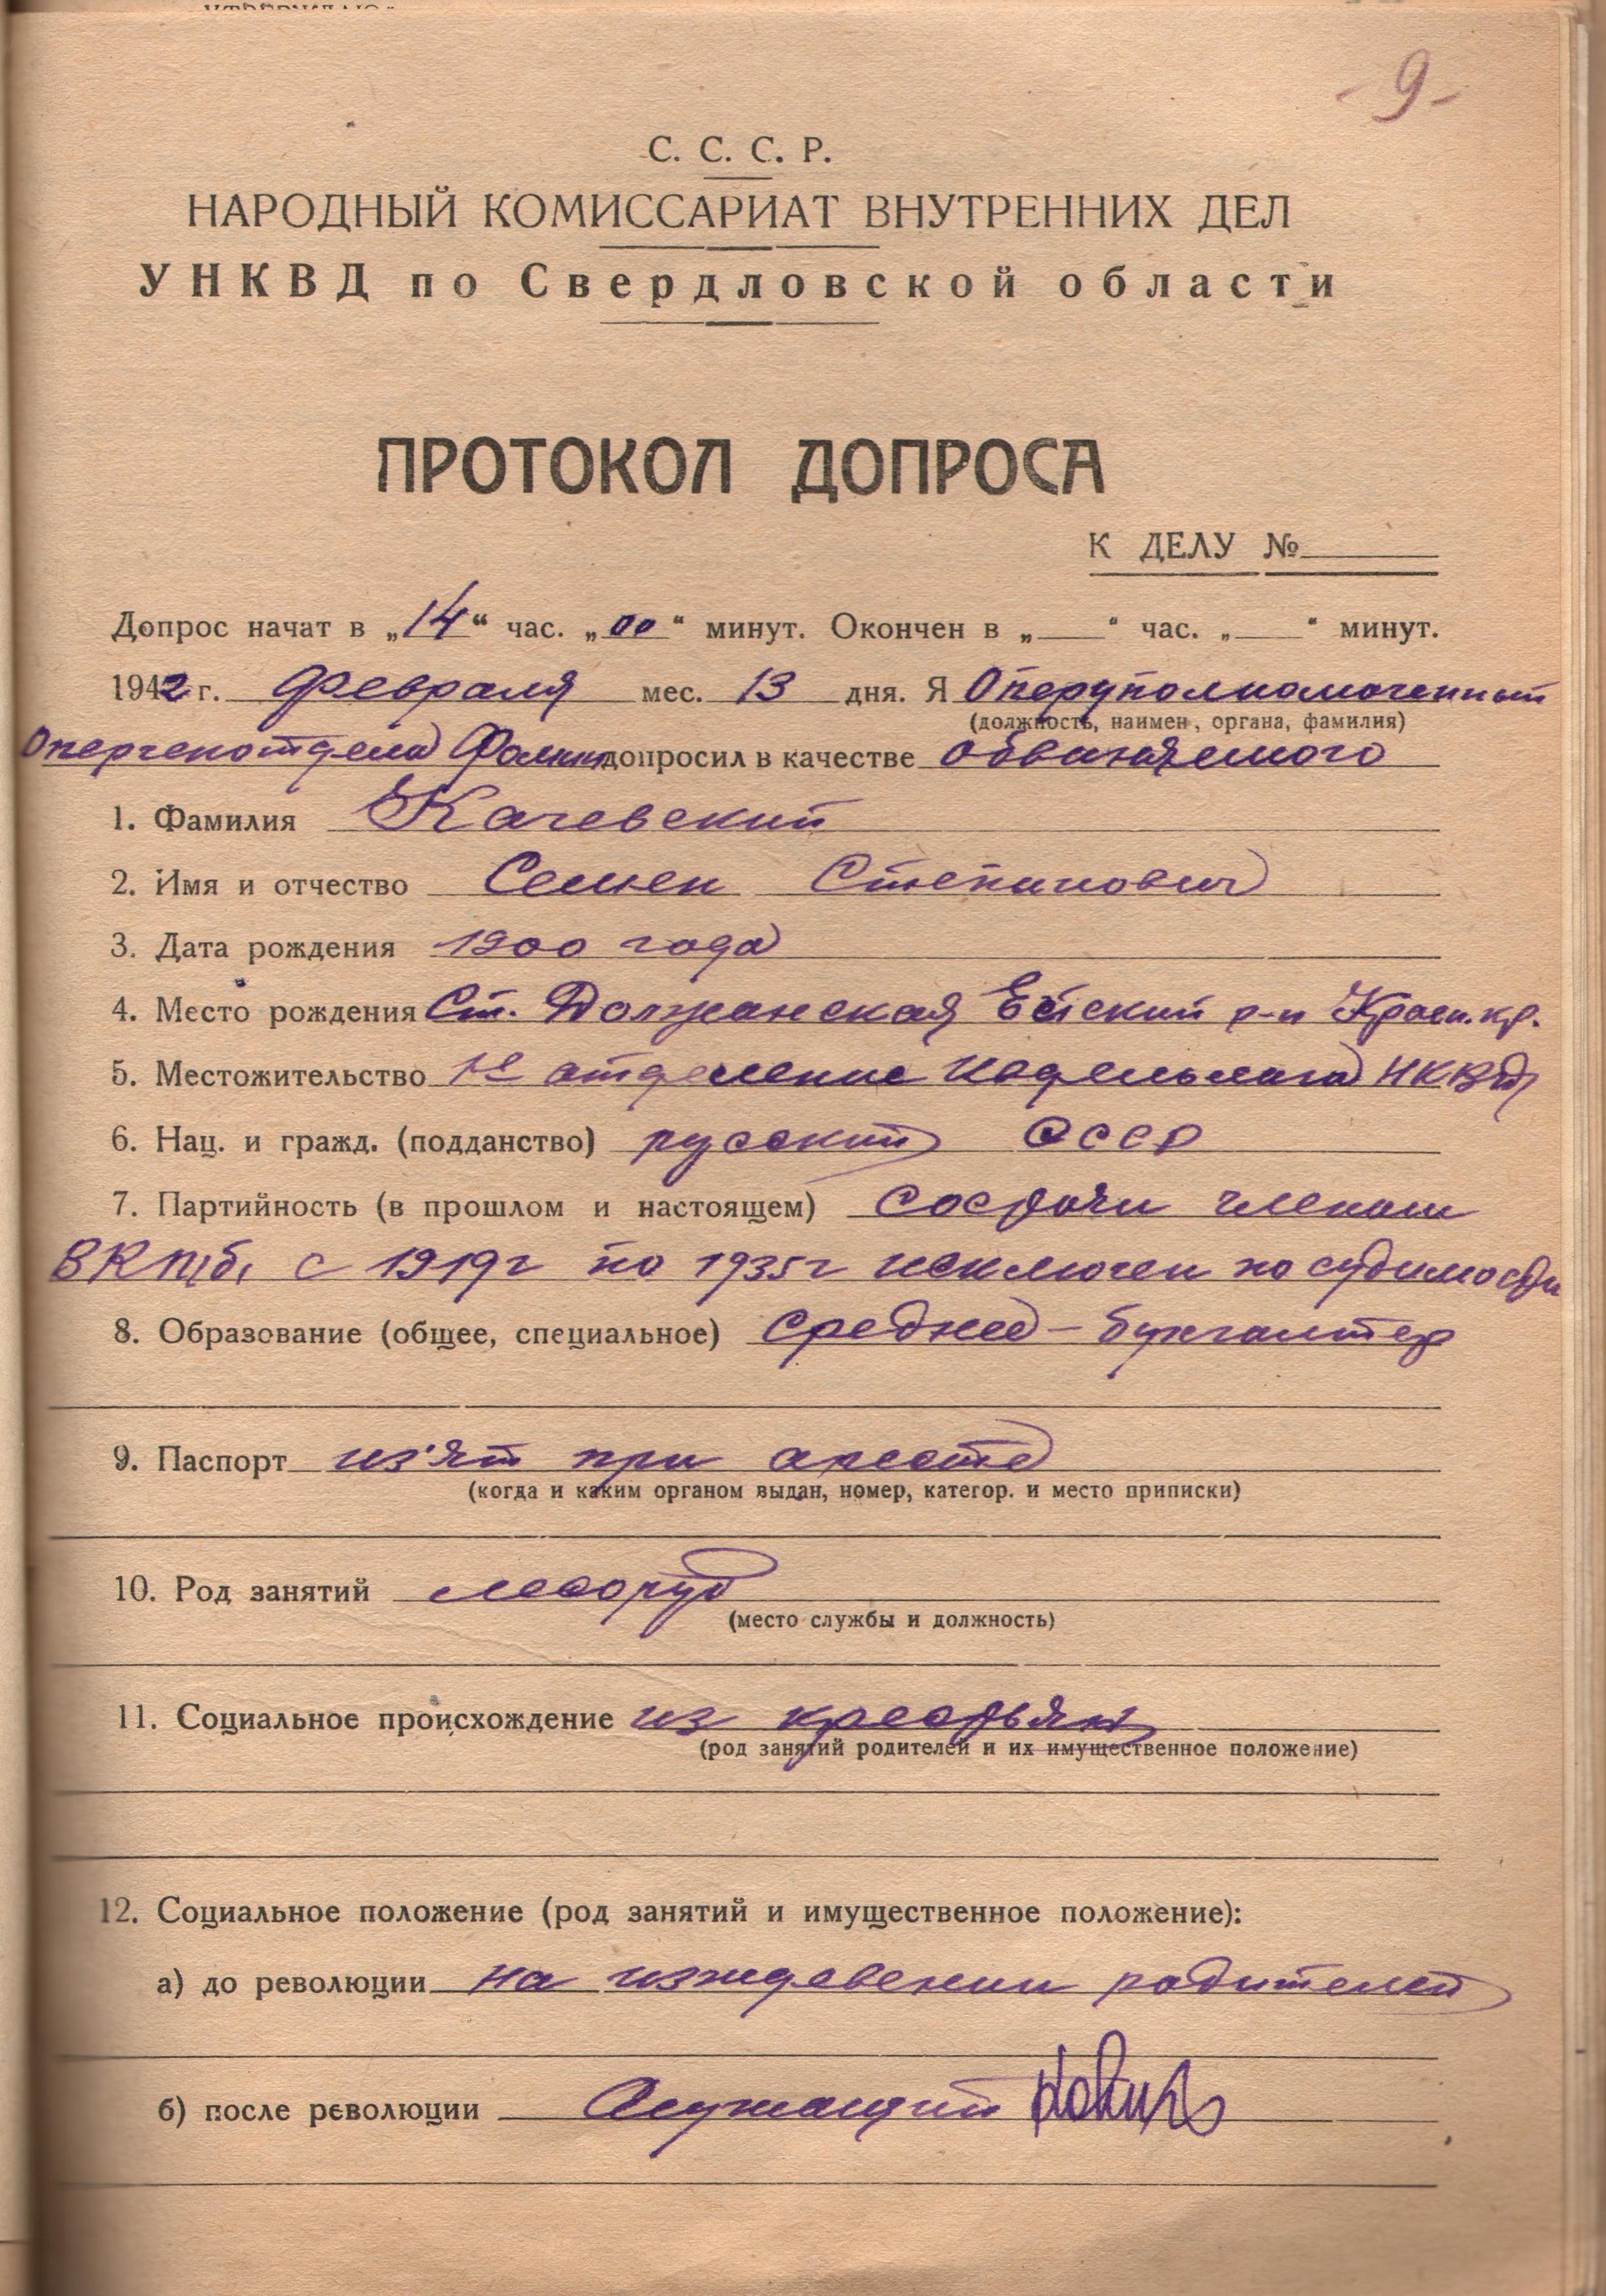 - 9 -
С. С. С. Р.
НАРОДНЫЙ КОМИССАРИАТ ВНУТРЕННИХ ДЕЛ
УНКВД по Свердловской области
ПРОТОКОЛ ДОПРОСА
К ДЕЛУ №
Допрос начат в „14“ час. „00“ минут. Окончен в „ “ час. „ “ минут.
1942 г. февраля мес. 13 дня. Я Оперуполномоченный
(должность, наимен, органа, фамилия)
Оперчекотдела допросил в качестве обвиняемого
1. Фамилия Качевский
2. Имя и отчество Семен Степанович
3. Дата рождения 1900 года
4. Место рождения Ст. Должанская Ейский р-н Красн. кр.
5. Местожительство 1е отделение Ивдельлага НКВД
6. Нац. и гражд. (подданство) русский СССР
7. Партийность (в прошлом и настоящем) состоял членом
ВКПб, с 1919г по 1935г исключен по судимости
8. Образование (общее, специальное) среднее - бухгалтер
9. Паспорт из'ят при аресте
(когда и каким органом выдан, номер, категор. и место приписки)
10. Род занятий лесоруб
(место службы и должность)
11. Социальное происхождение из крестьян
(род занятий родителей и их имущественное положение)
12. Социальное положение (род занятий и имущественное положение):
а) до революции на иждевении родителей
б) после революции Служащий